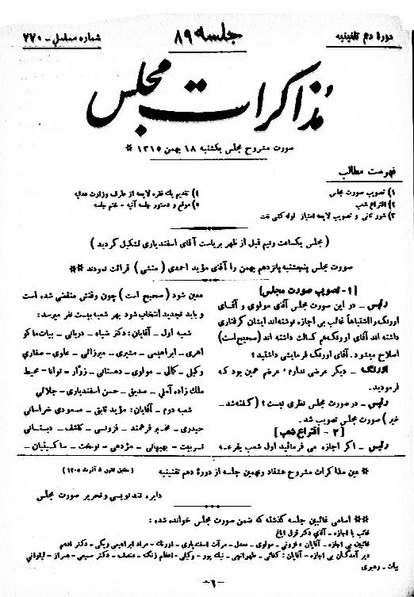 دورهٔ دهم تقنینیه
جلسه ۸۹
شماره مسلسل - ۲۷۰
مذاکرات مجلس
صورت مشروح مجلس یکشنبه ۱۸ بهمن ۱۳۱۵ *
فهرست مطالب
۱) تصویب صورت مجلس
۲) اقتراع شعب
۳) شور ثانی و تصویب لایحه امتیاز لوله کشی نفت
۴) تقدیم یک فقره لایحه از طرف وزارت عدلیه
۵) موقع و دستور جلسه آتیه - ختم جلسه
( مجلس یکساعت ونیم قبل از ظهر بریاست آقای اسفندیاری تشکیل گردید )
صورت مجلس پنجشنبه پانزدهم بهمن را آقای مؤید احمدی ( منشی ) قرائت نمودند **
[ ۱ - تصویب صورت مجلس ]
رئیس - در این صورت مجلس آقای مولوی و آقای
اورنگ را اشتباهاً غائب بی اجازه نوشته‌اند ایشان گرفتاری
داشته اند آقای اورنگ هم کسالت داشته اند (صحیح است)
اصلاح میشود. آقای اورنگ فرمایشی داشتید ؟
اورنگ - دیگر عرضی ندارم ، عرضم همین بود که
فرمودید.
رئیس - در صورت مجلس نظری نیست ؟ ( گفته شد -
خیر ) صورت مجلس تصویب شد.
[ ۲ - اقتراع شعب ]
رئیس - اگر اجازه می فرمائید اول شعب بقرعه
معین شود ( صحیح است ) چون وقتش منقضی شده است
و باید تجدید انتخاب شود بهر شعبه بیست نفر میرسد:
شعبه اول - آقایان: دکتر ضیاء - دربانی - بیات ماکو
اهری - ابراهیمی - مشیری - میرزائی - عاوی - صفاری
وکیلی - کمالی - مولوی - دهستانی - زوار - توانا - محیط
ملک زاده آملی - صدیق - حسن اسفندیاری - جلائی
شعبه دوم - آقایان: مؤید ثابتی - مسعودی خراسانی
حیدری - مخبر فرهمند - فزونی - کاشف - دبستانی
تربیت - بهبهانی - مؤدهی - نوبخت - ساکینیان -
* عین مذاکرات مشروح هشتاد ونهمین جلسه از دورهٔ دهم تقنینیه
دایره تندنویسی و تحریر صورت مجلس
** اسامی غائبین جلسه گذشته که ضمن صورت مجلس خوانده شده:
بیات - رهبری
- ۱ -